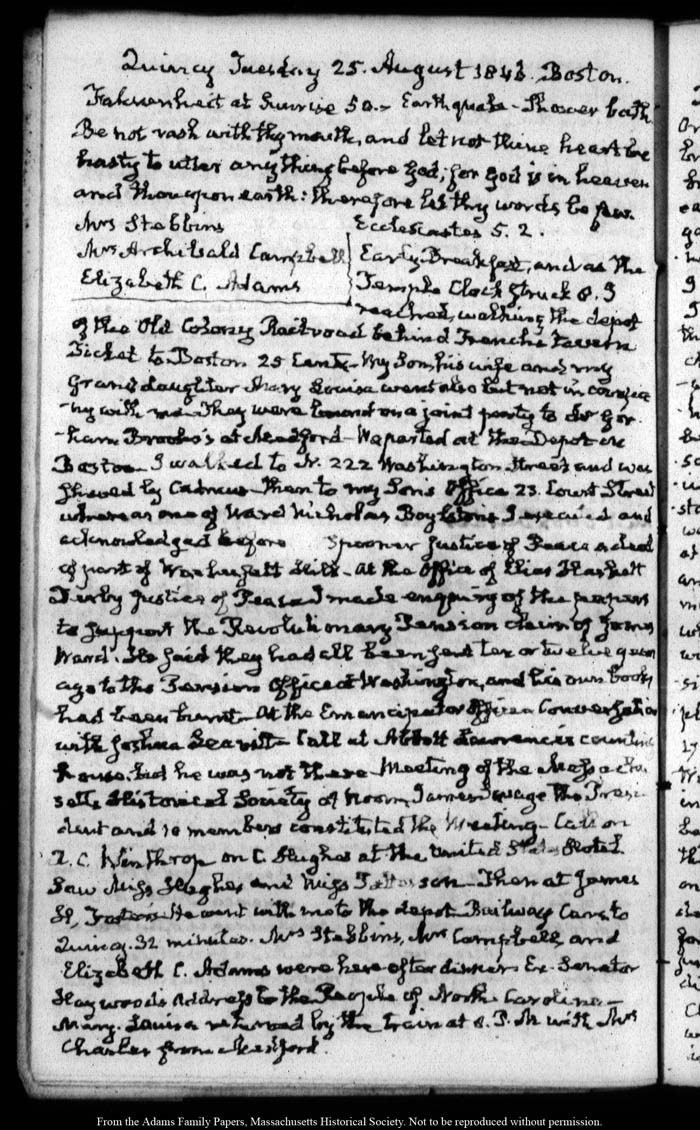 Quincy Tuesday 25. August 1846. Boston.
Fahrenheit at Sunrise 50.- Earthquake - Shower bath
Be not rash with thy mouth, and let not thine heart be
hasty to utter any thing before God; for God is in heaven
and thou upon earth: therefore let thy words be few.
Mrs Stebbins
Ecclesiastes 5. 2.
Mrs Archibald Campbell
Early Breakfast, and as the
Elizabeth C. Adams
Temple Clock struck 8. I
reached, walking the depot
of the Old Colony Railroad behind French's Tavern
Ticket to Boston 25 Cents - My Son, his wife and my
Grand daughter Mary Louisa went also but not in compa
-ny with me - They were bound on a joint party to Mr Gor
-ham Brooks's at Medford - We parted at the Depot in
Boston - I walked to N. 222 Washington Street and was
shaved by Cadmus - then to my Son's Office 23. Court Street
where as one of Ward Nicholas Boylston's I executed and
acknowledged before Spooner Justice of Peace a deed
of part of Wachusett Hills - At the Office of Elias Haskett
Derby Justice of Peace I made enquiry of the papers
to support the Revolutionary Pension claim of James
Ward. He said they had all been sent ten or twelve years
ago to the Pension Office at Washington, and his own books
had been burnt - At the Emancipator Office Conversation
with Joshua Leavitt - Call at Abbott Lawrence's counting
house, but he was not there - Meeting of the Massachu
setts Historical Society at Noon James Savage the Presi
dent and 10 members constituted the Meeting - Call on
R. C. Winthrop on C. Hughes at the United States Hotel
Saw Miss Hughes and Miss Patterson - Then at James
H, Foster's He went with me to the depot - Railway Cars to
Quincy. 32 minutes. Mrs Stebbins, Mrs Campbell, and
Elizabeth C. Adams were here after dinner Ex. Senator
Haywood's Address to the People of North Carolina -
Mary Louisa returned by the train at 8. P. M with Mrs
Charles from Medford.
From the Adams Family Papers, Massachusetts Historical Society. Not to be reproduced without permission.